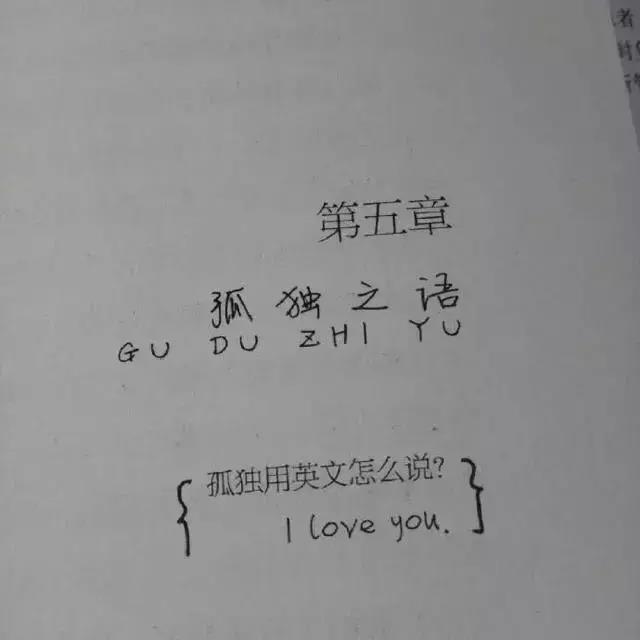 第五章
孤独之语
GU DU ZHI YU
孤独用英文怎么说?
I love you.
者